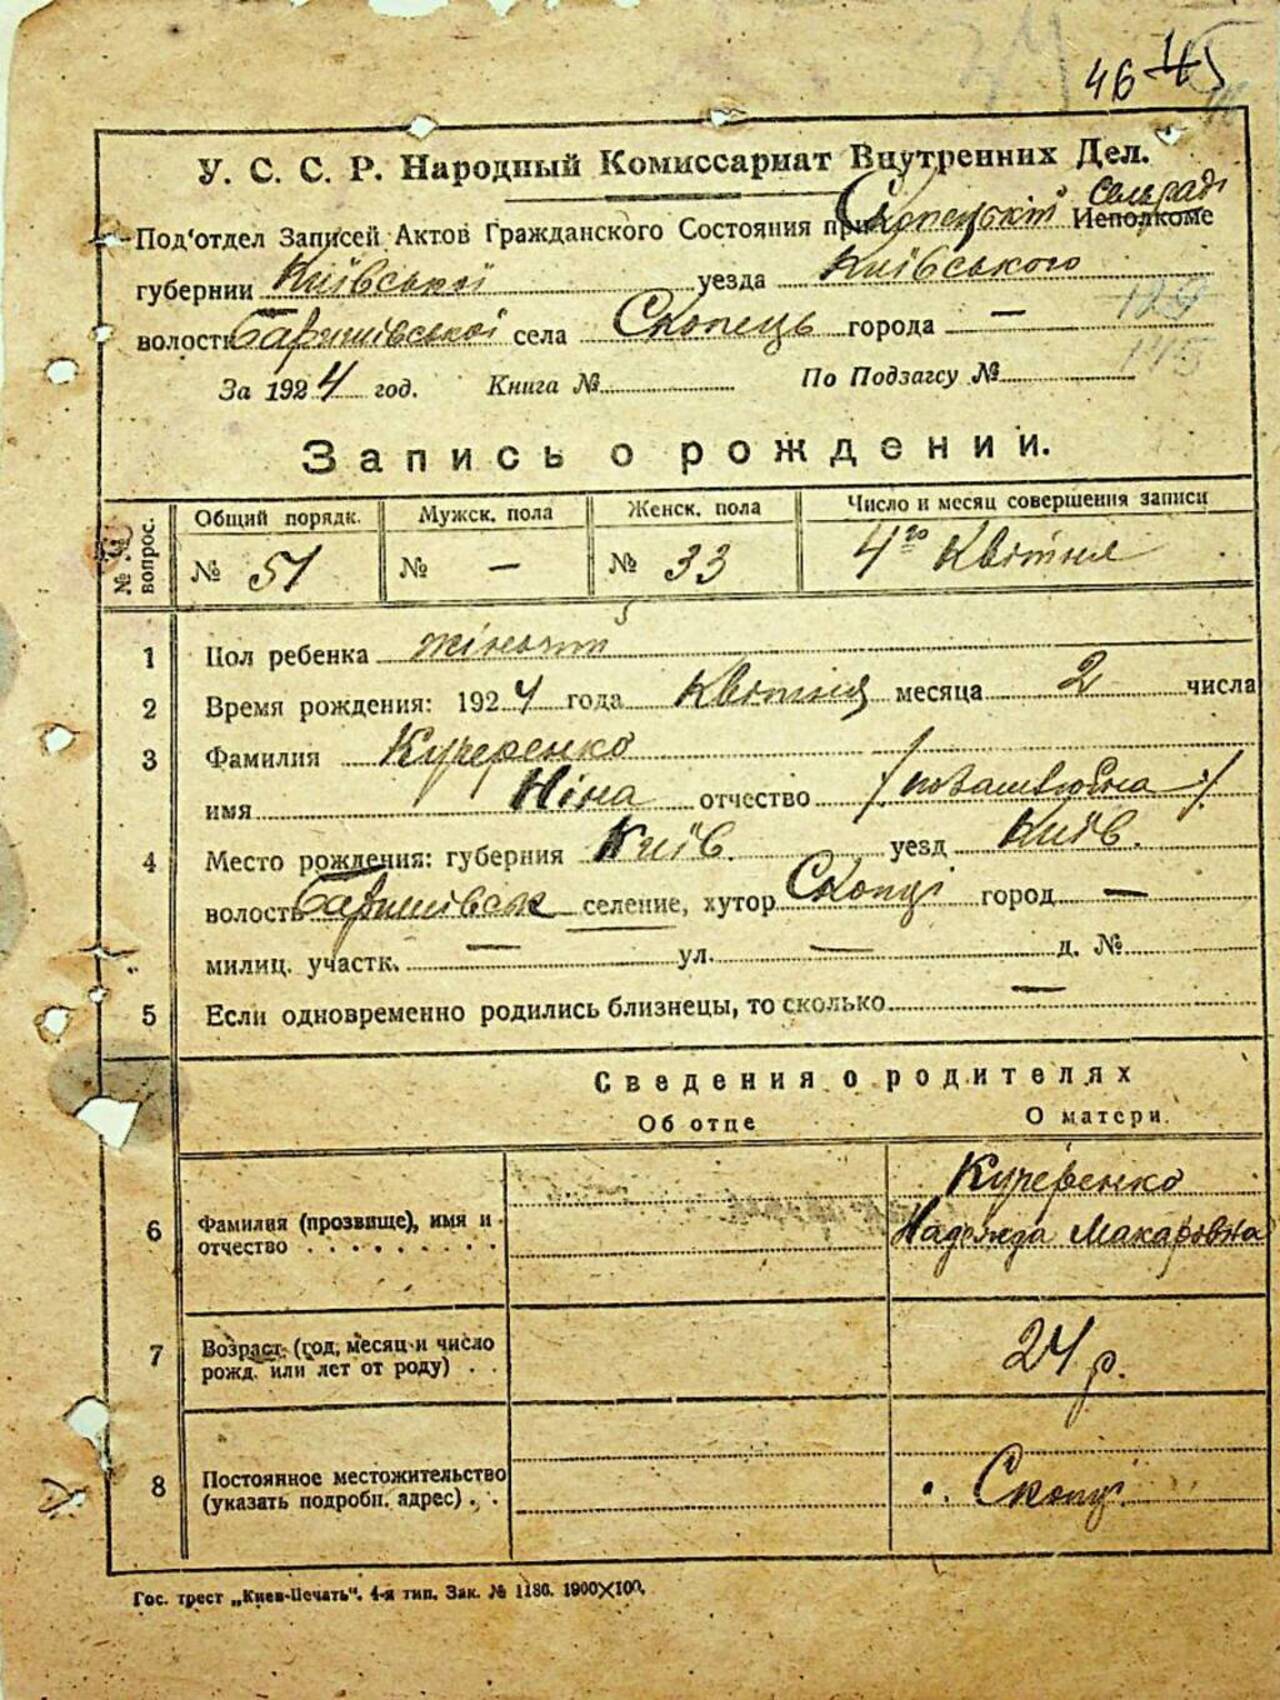 46 45
У. С. С. Р. Народный Комиссариат Внутренних Дел.
сельраді
Под'отдел Записей Актов Гражданского Состояния при Скопецькій Исполкоме
губернии Київської уезда Київського
волости Баришівської села Скопець города —
За 1924 год. Книга № По Подзагсу №
Запись о рождении.
№№ вопрос.
Общий порядк. Мужск. пола Женск. пола Число и месяц совершения записи
№ 51 № — № 33 4го Квітня
1 Пол ребенка жіночий
2 Время рождения: 1924 года Квітня месяца 2 числа
3 Фамилия Кучеренко
имя Ніна отчество /позашлюбна/
4 Место рождения: губерния Київ. уезд Київ.
волость Баришівськ селение, хутор Скопці город —
милиц. участк. — ул. — д. №
5 Если одновременно родились близнецы, то сколько —
Сведения о родителях
Об отце О матери.
6 Фамилия (прозвище), имя и отчество
Кучеренко
Надежда Макаровна
7 Возраст (год, месяц и число рожд. или лет от роду)
24 р.
8 Постоянное местожительство (указать подробн. адрес)
Скопці
Гос. трест „Киев-Печать". 4-я тип. Зак. № 1186. 1900×100.